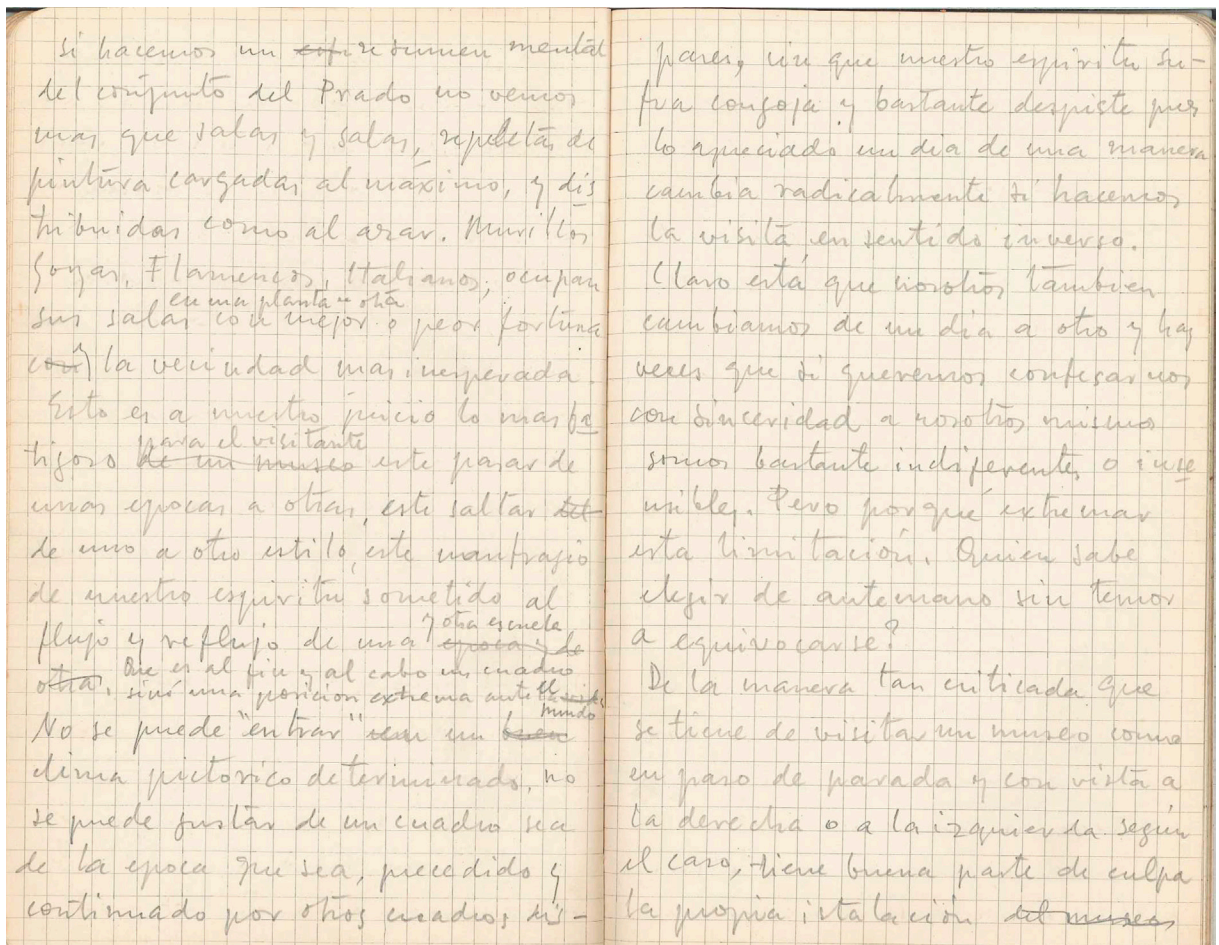 Si hacemos un resumen mental
del conjunto del Prado no vemos
mas que salas y salas, repletas de
pintura cargadas al máximo, y dis
tribuidas como al azar. Murillos
Goyas, Flamencos, Italianos, ocupan
en una planta u otra
sus salas con mejor o peor fortuna
con la vecindad mas inesperada.
Esto es a nuestro juicio lo mas fa
para el visitante
tigoso de un museo este pasar de
unas epocas a otras, este saltar del
de uno a otro estilo, este naufragio
de nuestro espiritu sometido al
y otra escuela
flujo y reflujo de una epoca y de
Que es al fin y al cabo un cuadro
otra, sinó una posicion extrema ante el
mundo
No se puede "entrar" en un buen
clima pictorico determinado, no
se puede gustar de un cuadro sea
de la epoca que sea, precedido y
continuado por otros cuadros dis-
pares, sin que nuestro espiritu su-
fra congoja y bastante despiste pues
lo apreciado un dia de una manera
cambia radicalmente si hacemos
la visita en sentido inverso.
Claro está que nosotros tambien
cambiamos de un dia a otro y hay
veces que si queremos confesarnos
con sinceridad a nosotros mismos
somos bastante indiferentes o inse
nsibles. Pero porqué extremar
esta limitación. Quien sabe
elegir de antemano sin temor
a equivocarse?
De la manera tan criticada que
se tiene de visitar un museo como
en paso de parada y con vista a
la derecha o a la izquierda según
el caso, tiene buena parte de culpa
la propia istalación del museo